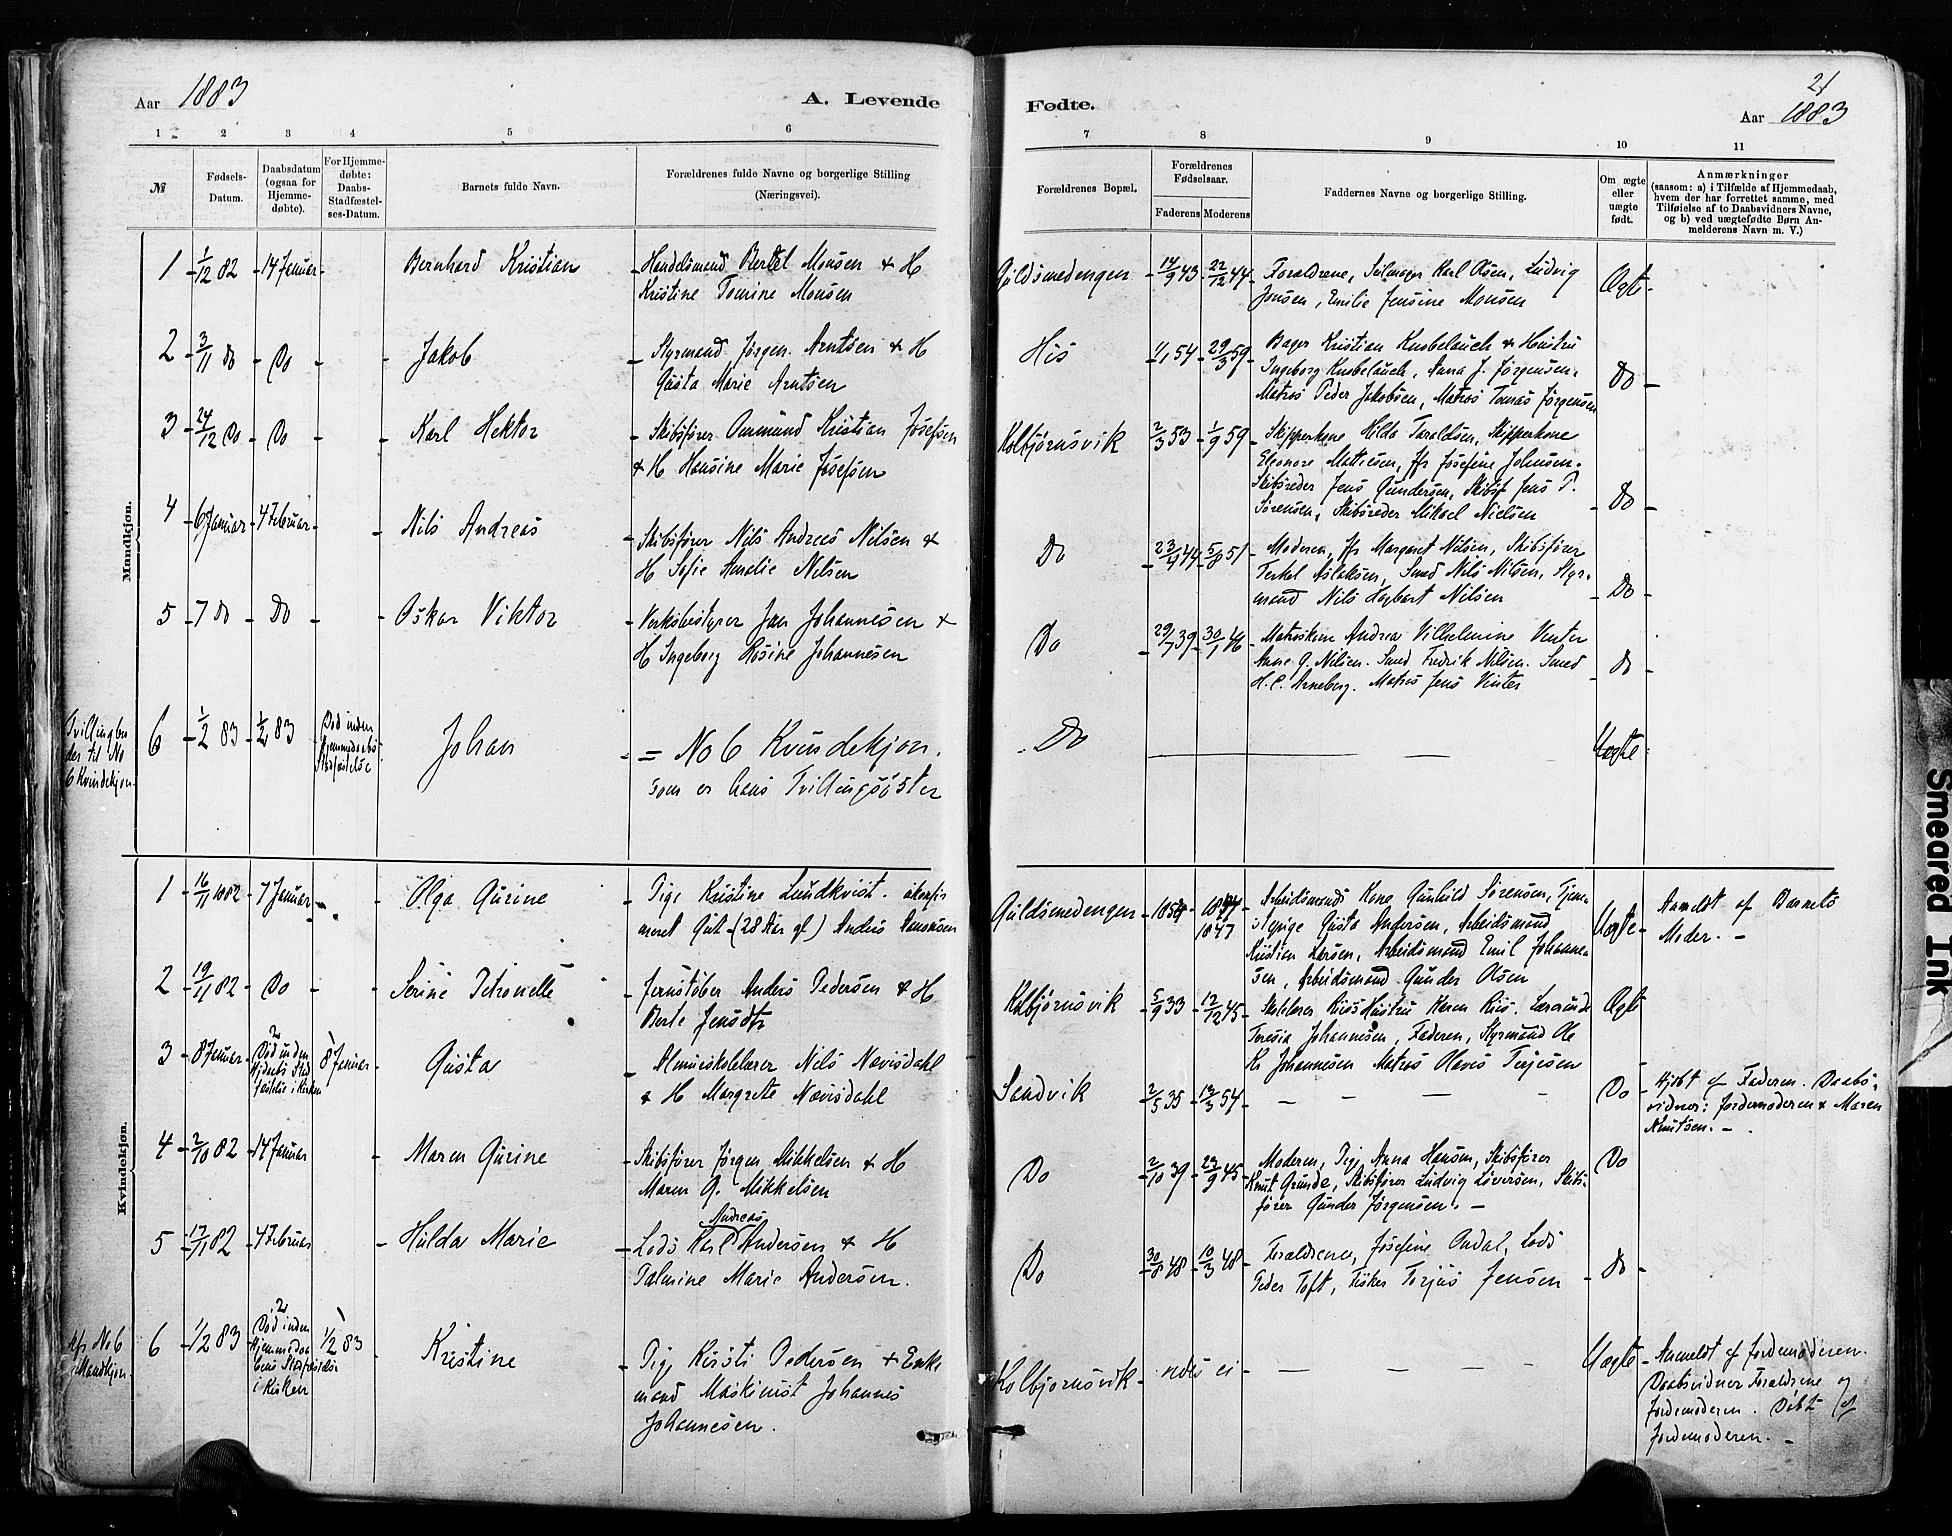 Aar 1883
A. Levende
1 2 3 4 5 6
№
Fødsels-
Datum.
Daabsdatum
(ogsaa for
Hjemme-
døbte).
For Hjemme-
døbte:
Daabs-
Stadfæstel-
ses-Datum.
Barnets fulde Navn.
Forældrenes fulde Navne og borgerlige Stilling
(Næringsvei).
Mandkjøn.
1 1/12 82 14 Januar Bernhard Kristian Handelsmand Bertel Monsen & H
Kristine Tomine Monsen
2 3/11 Do Do Jakob Styrmand Jørgen Arntsen & H
Gusta Marie Arntsen
3 24/12 Do Do Karl Hektor Skibsfører Kristian Josefsen
& H Hansine Marie Josefsen
4 6 Januar 4 Februar Nils Andreas Skibsfører Nils Andreas Nilsen &
H Sofie Amalie Nilsen
5 7 Do Do Oskar Viktor Verksbestyrer Jan Johannesen &
H Ingeborg Rosine Johannesen
Tvillingbro
der til No
6 Kvindekjøn.
6 1/2 83 1/2 83 Død inden
Hjemmedaabs
Stadfæstelse
Johan = No 6 Kvindekjøn.
som er hans Tvillingsöster
Kvindekjøn.
1 16/11 1882 7 Januar Olga Gurine Pige Kristine Lundkvist. ukonfir
meret Gut (28 Aar gl) Anders Aanonsen
2 19/11 82 Do Serine Petronelle Jernstøber Anders Pedersen & H
Berte Jensdtr
3 8 Januar Død inden
Hjdaabs Stad
fæstelse i Kirken 8 Januar Gusta Almueskolelærer Nils Navisdahl
& H Margrete Navisdahl
4 2/10 82 14 Januar Maren Gurine Skibsfører Jørgen Mikkelsen & H
Maren G. Mikkelsen
5 17/11 82 4 Februar Hulda Marie Lods Karl Andreas Andersen & H
Talmine Marie Andersen.
No 6
Mandkjøn.
6 1/2 83 Død inden
Hjemmedaa
bens Stadfæstelse
i Kirken 1/2 83 Kristine Pige Kirsti Pedersen & Enke
mand Maskinist Johannes
Johannesen.
Fødte.
21
Aar 1883
7 8 9 10 11
Forældrenes Bopæl.
Forældrenes
Fødselsaar.
Faderens Moderens
Faddernes Navne og borgerlige Stilling.
Om ægte
eller
uægte
født.
Anmærkninger
(saasom: a) i Tilfælde af Hjemmedaab,
hvem der har forrettet samme, med
Tilføielse af to Daabsvidners Navne,
og b) ved uægtefødte Børn An-
melderens Navn m. V.)
Guldsmedengen 14/9 43 22/12 44 Forældrene, Seilmager Karl Olsen, Ludvig
Jensen, Emilie Jensine Monsen Ægte
His 1/1 54 29/3 59 Bager Kristian Knobelauch & Hustru
Ingeborg Knobelauch, Anna J. Jørgensen.
Matros Peder Jakobsen, Matros Tomas Jørgensen Do
Kolbjørnsvik 2/3 53 1/9 59 Skipperkone Hilda Taraldsen, Skipperkone
Eleonore Mathiesen, Jfr Josefine Johnsen.
Skibsreder Jens Gundersen, Skibsf Jens P.
Sørensen, Skibsreder Mikael Nielsen Do
Do 23/4 44 5/8 51 Moderen, Jfr Margaret Nilsen, Skibsfører
Terkel Aslaksen, Smed Nils Nilsen, Styr-
mand Nils Hagbart Nilsen Do
Do 29/7 39 30/1 46 Matroskone Andrea Vilhelmine Vinter
Anne G. Nilsen. Smed Fredrik Nilsen. Smed
H. C. Arneberg. Matros Jens Vinter Do
Do Uægte
Guldsmedengen 1854 1847
1847 Arbeidsmands Kone Gunhild Sørensen, Tjene-
stepige Gusta Andersen, Arbeidsmand
Kristian Larsen, Arbeidsmand Emil Johanne-
sen, Arbeidsmand Gunder Olsen Uægte Anmeldt af Barnets
Moder.
Kolbjørnsvik 5/9 33 12/12 45 Skolelærer Riis's Hustru Maren Riis. Lærerinde
Teresia Johannesen, Faderen, Styrmand Ole
Kr Johannesen Matros Olavis Terjesen Ægte
Sandvik 2/5 35 13/3 54 Do Hjdbt af Faderen. Daabs-
vidner: Jordemoderen & Maren
Knutsen.
Do 2/10 39 23/9 45 Moderen, Pige Anna Hansen, Skibsfører
Knut Grunde, Skibsfører Ludvig Löversen, Skibs-
fører Gunder Jørgensen. Do
Do 30/8 48 10/3 48 Forældrene, Josefine Omdal, Lods
Peder Toft, Fisker Terjus Jensen Do
Kolbjørnsvik Uægte Anmeldt af Jordemoderen.
Daabsvidner Forældrene og
Jordemoderen. Døbt af
Jordemoderen.
Smeared Ink